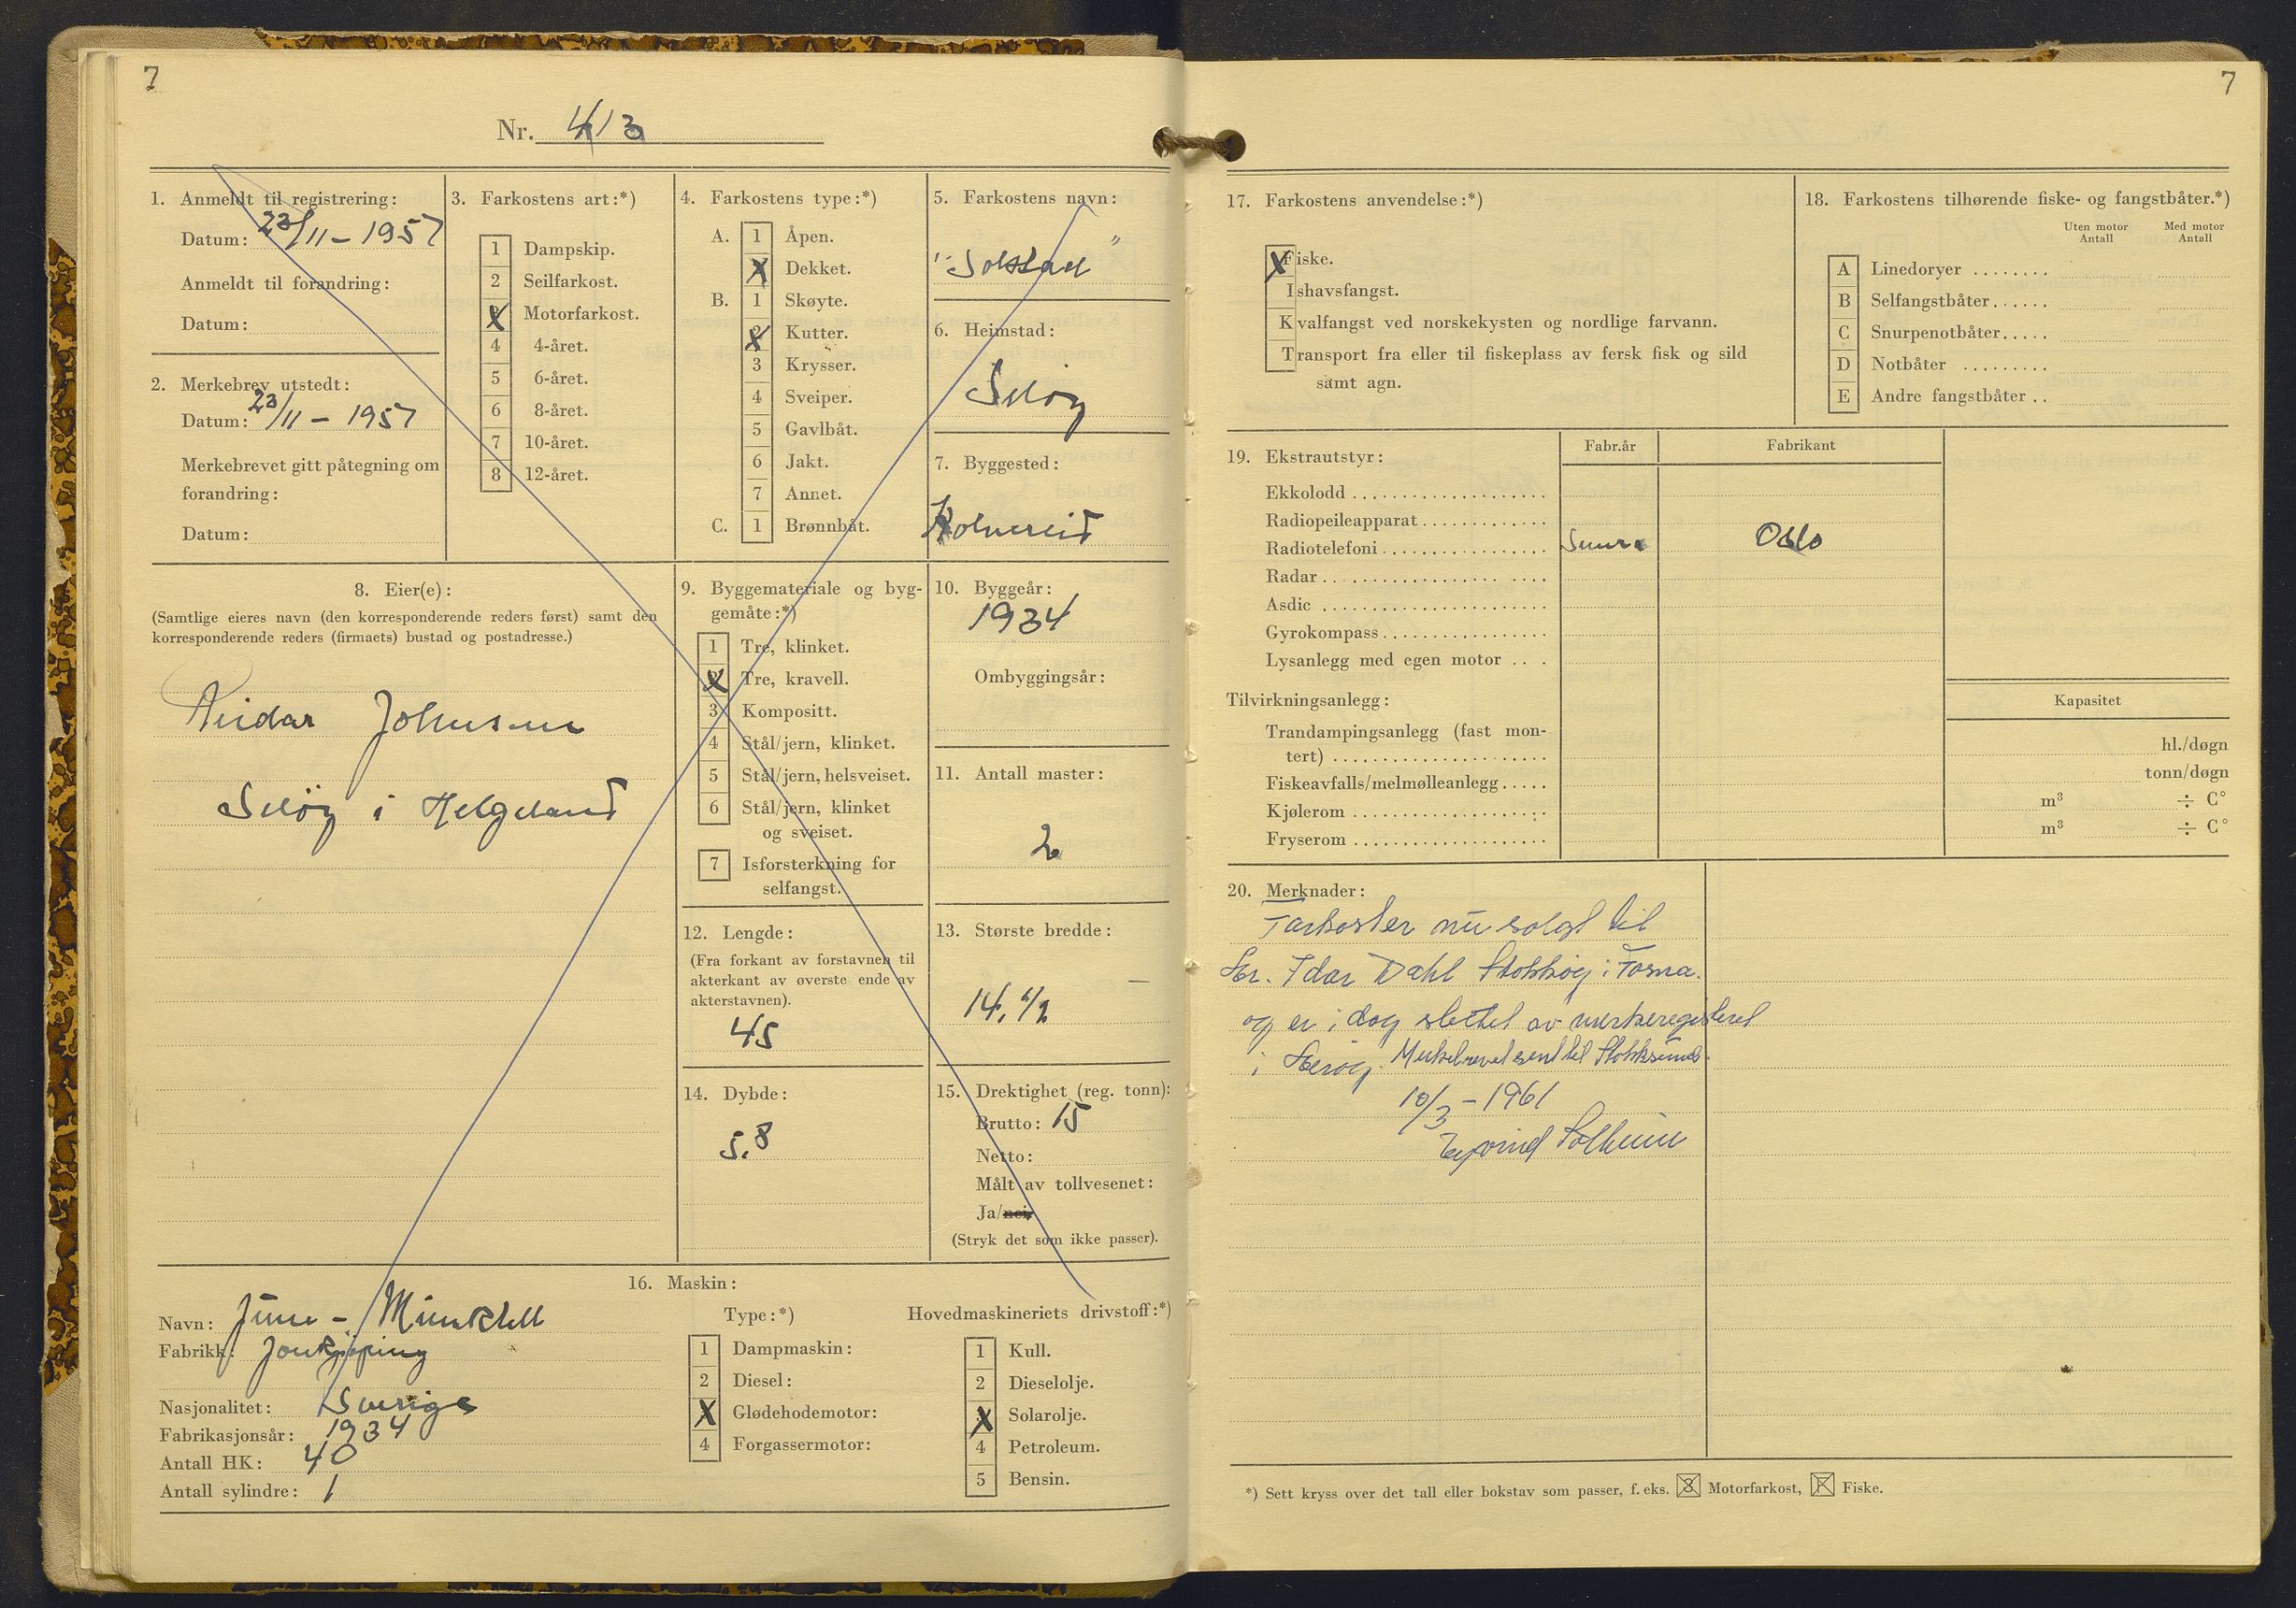 7
Nr. 413
1. Anmeldt til registrering:
Datum: 23/11 – 1957
Anmeldt til forandring:
Datum:
2. Merkebrev utstedt:
Datum: 23/11 – 1957
Merkebrevet gitt påtegning om
forandring:
Datum:
3. Farkostens art:*)
1 Dampskip.
2 Seilfarkost.
X Motorfarkost.
4 4-året.
5 6-året.
6 8-året.
7 10-året.
8 12-året.
4. Farkostens type:*)
A. 1 Åpen.
X Dekket.
B. 1 Skøyte.
X Kutter.
3 Krysser.
4 Sveiper.
5 Gavlbåt.
6 Jakt.
7 Annet.
C. 1 Brønnbåt.
5. Farkostens navn:
"Solstad"
6. Heimstad:
Seløy
7. Byggested:
Kolvereid
8. Eier(e):
(Samtlige eieres navn (den korresponderende reders først) samt den
korresponderende reders (firmaets) bustad og postadresse.)
Reidar Johnsen
Seløy i Helgeland
9. Byggemateriale og byg-
gemåte:*)
1 Tre, klinket.
X Tre, kravell.
3 Kompositt.
4 Stål/jern, klinket.
5 Stål/jern, helsveiset.
6 Stål/jern, klinket
og sveiset.
7 Isforsterkning for
selfangst.
10. Byggeår:
1934
Ombyggingsår:
11. Antall master:
2
12. Lengde:
(Fra forkant av forstavnen til
akterkant av øverste ende av
akterstavnen).
45
13. Største bredde:
14,1/2
14. Dybde:
5.8
15. Drektighet (reg. tonn):
Brutto: 15
Netto:
Målt av tollvesenet:
Ja/nei.
(Stryk det som ikke passer).
16. Maskin:
Navn: June – Munktell
Fabrikk: Jonkjöping
Nasjonalitet: Sverige
Fabrikasjonsår: 1934
Antall HK: 40
Antall sylindre: 1
Type:*)
1 Dampmaskin:
2 Diesel:
X Glødehodemotor:
4 Forgassermotor:
Hovedmaskineriets drivstoff:*)
1 Kull.
2 Dieselolje.
X Solarolje.
4 Petroleum.
5 Bensin.
7
17. Farkostens anvendelse:*)
Fiske.
Ishavsfangst.
Kvalfangst ved norskekysten og nordlige farvann.
Transport fra eller til fiskeplass av fersk fisk og sild
samt agn.
18. Farkostens tilhørende fiske- og fangstbåter.*)
Uten motor Med motor
Antall Antall
A Linedoryer ........
B Selfangstbåter......
C Snurpenotbåter.....
D Notbåter .........
E Andre fangstbåter ..
19. Ekstrautstyr: Fabr.år Fabrikant
Ekkolodd
Radiopeileapparat
Radiotelefoni Oslo
Radar
Asdic
Gyrokompass
Lysanlegg med egen motor
Tilvirkningsanlegg: Kapasitet
Trandampingsanlegg (fast mon-
tert) hl./døgn
Fiskeavfalls/melmølleanlegg..... tonn/døgn
Kjølerom m³ ÷ C°
Fryserom m³ ÷ C°
20. Merknader:
Farkosten nu solgt til
Hr. Idar Dahl Stokkøy i Fosna.
og er i dag slettet av merkeregisteret
i Herøy. Merkebrevet sent til Stokksund.
10/3 – 1961
Eyvind Solheim
*) Sett kryss over det tall eller bokstav som passer, f. eks. 3 Motorfarkost, F Fiske.